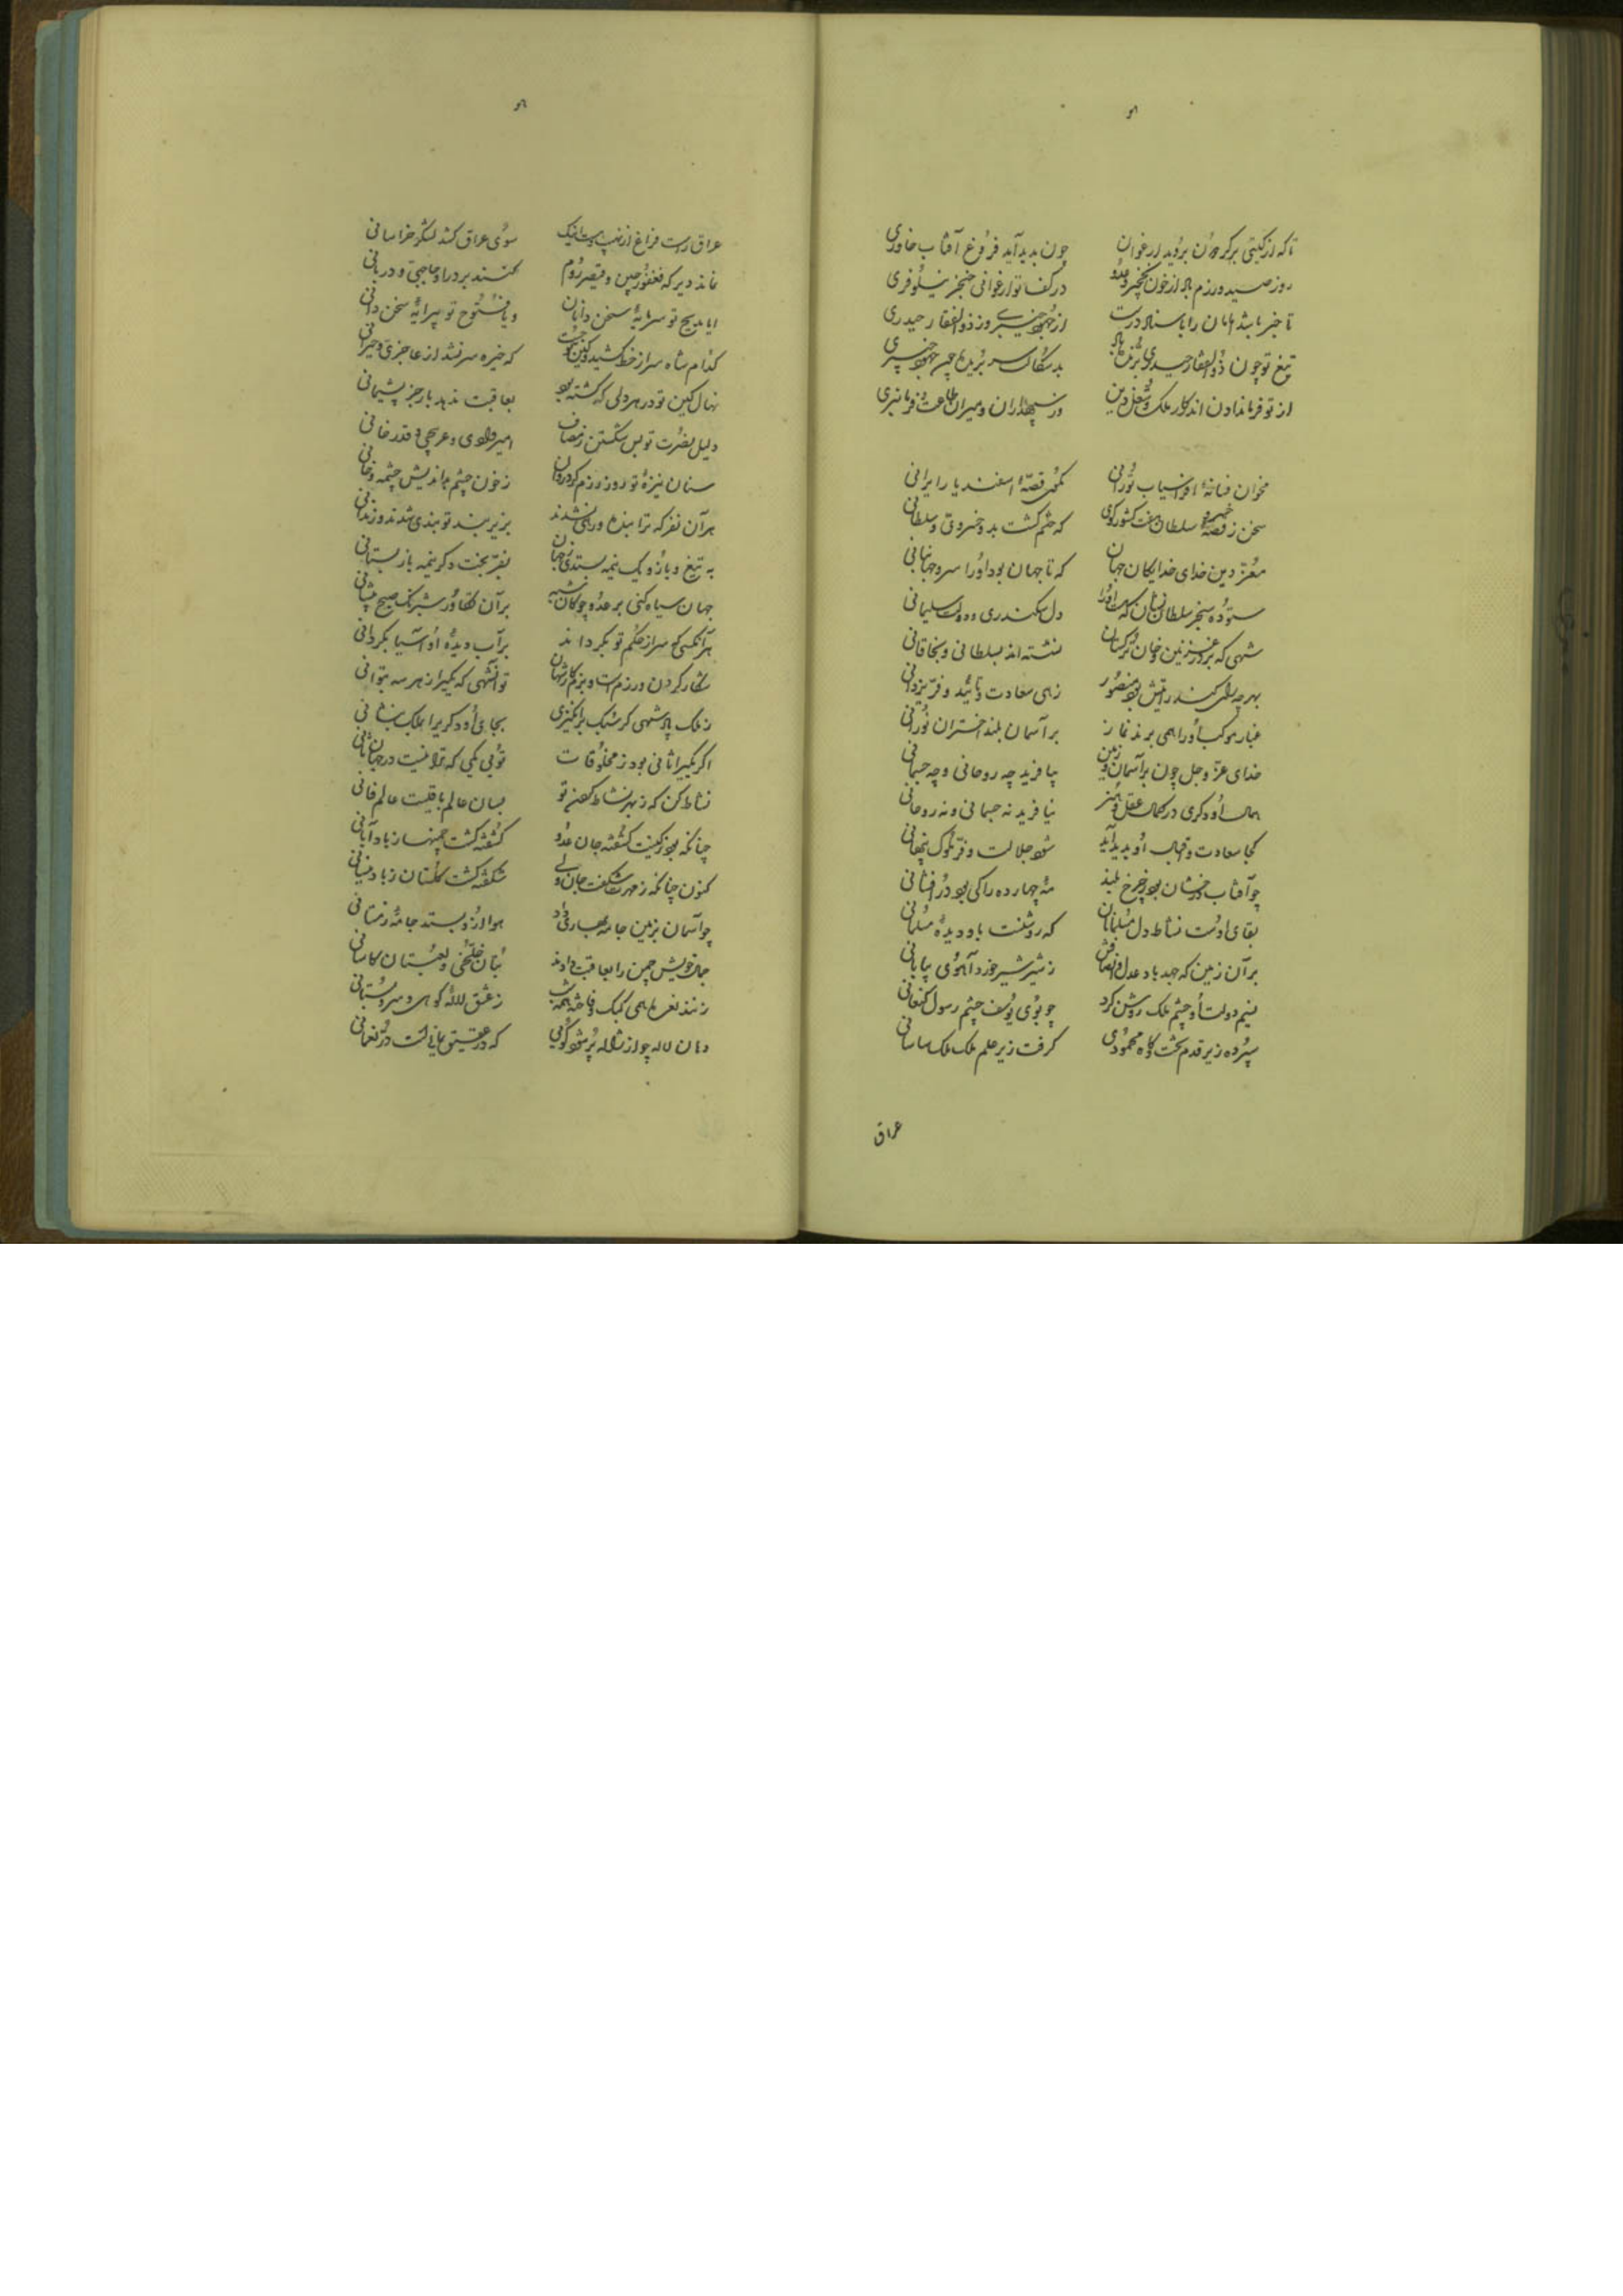 تا که از گیتی بر گردون بروید ارغوان چون پدید آید فروغ آفتاب خاوری
روز صید و رزم باد از خون نخچیر و عدو در کف تو ارغوانی خنجر نیلوفری
تا خبر باشد امامان را باسناد درست از جهود خیبر و ز ذوالفقار حیدری
تیغ تو چون ذوالفقار حیدری بُرّنده باد بدسگالت سر بریده چون جهود خیبری
از تو فرماندادن اندر کار ملک و شغل دین وز سپهداران و میران طاعت و فرمانبری
مخوان فسانهٔ افراسیاب تورانی مگوی قصّهٔ اسفندیار ایرانی
سخن ز قصهٔ سلطان هفت کشور گوی که ختم گشت بدو خسروی و سلطانی
معزّ دین خدای خدایگان جهان که تا جهان بود او را سزد جهانبانی
ستوده سنجر سلطان نشان که هست او را دل سکندری و دولت سلیمانی
شهی که بر در غزنین و خان ترکستان نشسته‌اند بسلطانی و بخاقانی
بهر چه رای کند رایتش بود منصور زهی سعادت و تأیید و فرّ یزدانی
غبار موکب او را همی برند نماز بر آسمان بلند اختران نورانی
خدای عزّ و جل چون بر آسمان و زمین بیافرید چه روحانی و چه جسمانی
همال او دگری در کمال عقل و هنر نیافرید نه جسمانی و نه روحانی
کجا سعادت و اقبال او پدید آید شود جلالت و فرّ ملوک پنهانی
چو آفتاب درخشان بود ز چرخ بلند مه چهارده را کی بود درافشانی
بقای اوست نشاط دل مسلمانان که روشنست باو دیدهٔ مسلمانی
بر آن زمین که جهد باد عدل و انصافش ز شیر شیر خورد آهوی بیابانی
نسیم دولت او چشم ملک روشن کرد چو بوی یوسف چشم رسول کنعانی
سپرده زیر قدم تخت گاه محمودی گرفت زیر علم ملک ملک ساسانی
عراق
عراق راست فراغ از نهیب سوی عراق کشد لشکر خراسانی
نماند دیر که فغفور چین و قیصر روم کنند بر در او حاجبی و دربانی
ایا مدیح تو سرمایهٔ سخن دانان و یا فتوح تو پیرایهٔ سخن دانی
کدام شاه سر از خط کشید و کین تو جست که خیره سر نشد از عاجزی و حیرانی
نهال کین تو در هر دلی که کشته بود بعاقبت ندهد بار جز پشیمانی
دلیل نصرت تو بس شکستن و قدر خانی
سنان نیزهٔ تو روز رزم ز خون چشم بداندیش چشمه
هر آن نفر که ترا بنده و رهی نشدند بزیر بند تو بندی شدند و زندانی
به تیغ و بازو یک نیمه بستدی ز جهان بفرّ بخت دگر نیمه باز بستانی
جهان سیاه کنی بر عدو چو گاه بر آن تکاور شبرنگ صبح پیشانی
هر آنکسی که سر از حکم تو بگرداند بر آب دیدهٔ او آسیا بگردانی
شکار کردن و رزمست و بزم کار شهان تو آنشهی که بگیر از هر سه بتوانی
ز ملک پادشهی گر سبک برانگیزی بجای او دگری را بملک بنشانی
اگر یکی را ثانی بود ز مخلوقات تویی یکی که ترا نیست در جهان ثانی
نشاط کن که ز بهر نشاط بسان عالم باقیست عالم فانی
چنانکه بود ز کینت کشفته جان عدو کشفته گشت چمنها ز باد آبانی
کنون چنانکه ز مهرت شکفت جان ولی شکفته گشت گلستان ز باد نیسانی
چو آسمان بزمین جامهٔ بهاری داد هوا ازو بستد جامهٔ زمستانی
جمال خویش چمن را بعاقبت دادند بتان خلخی و لعبتان کاسانی
زنند نعره همی کبک و فاخته همه شب ز عشق لالهٔ کوهی و سرو بستانی
دهان لاله چو از ژاله پر شود گویی که در عقیق یمانی است درّ نعمانی